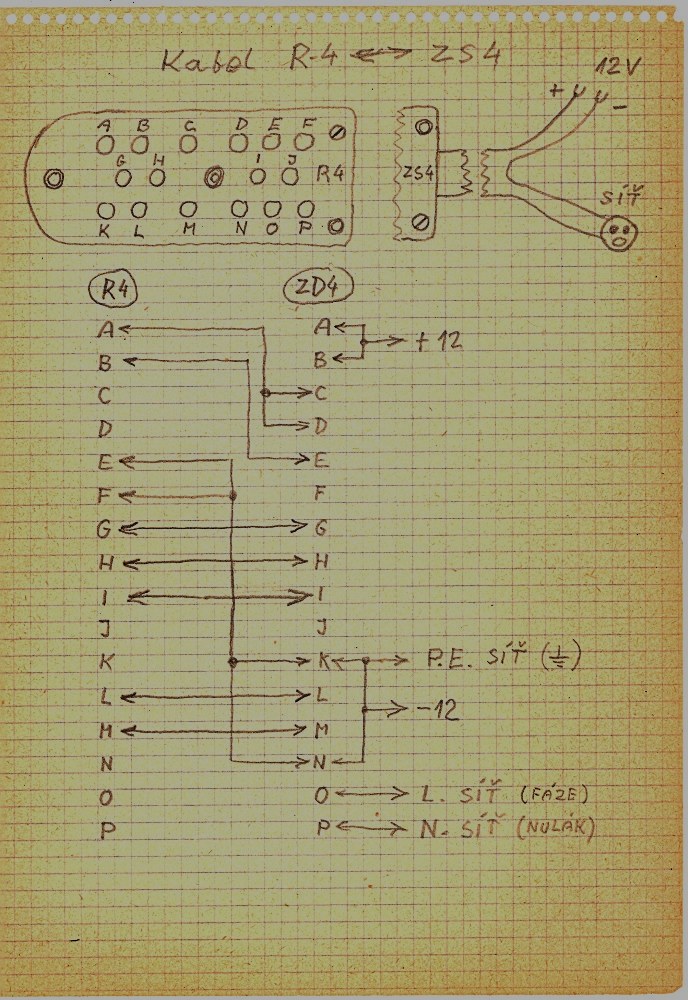 Kabel R-4 ↔ ZS4
12V
+ −
A B C D E F
G H I J R4
K L M N O P
ZS4
SÍŤ
R4 ZD4
A A
B B + 12
C C
D D
E E
F F
G G
H H
I I
J J
K K P.E. SÍŤ (⏚)
L L −12
M M
N N
O O L. SÍŤ (FÁZE)
P P N. SÍŤ (NULÁK)